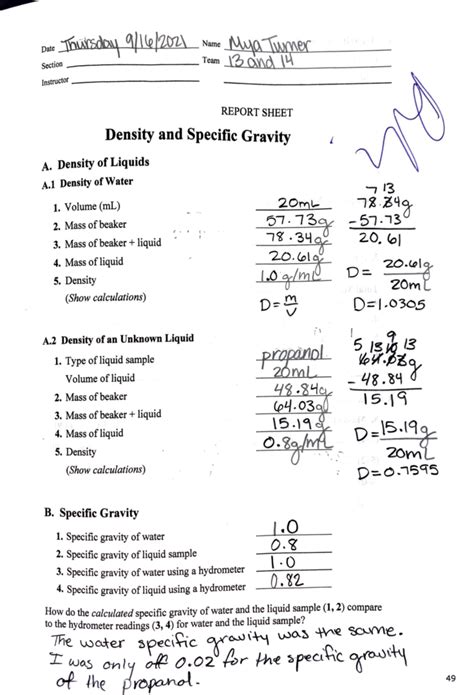 Date Thursday 9/16/2021 Name Mya Turner
Section Team 13 and 14
Instructor
REPORT SHEET
Density and Specific Gravity
A. Density of Liquids
A.1 Density of Water
1. Volume (mL) 20mL
2. Mass of beaker 57.73g
3. Mass of beaker + liquid 78.34g
4. Mass of liquid 20.61g
5. Density 1.0 g/mL
(Show calculations) D = m/v
7 13
78.34g
-57.73
20.61
D = 20.61g
20mL
D=1.0305
A.2 Density of an Unknown Liquid
1. Type of liquid sample propanol
Volume of liquid 20mL
2. Mass of beaker 48.84g
3. Mass of beaker + liquid 64.03g
4. Mass of liquid 15.19g
5. Density 0.8g/mL
(Show calculations)
9
5 13 10 13
64.03g
- 48.84
15.19
D=15.19g
20mL
D=0.7595
B. Specific Gravity
1. Specific gravity of water 1.0
2. Specific gravity of liquid sample 0.8
3. Specific gravity of water using a hydrometer 1.0
4. Specific gravity of liquid using a hydrometer 0.82
How do the calculated specific gravity of water and the liquid sample (1, 2) compare
to the hydrometer readings (3, 4) for water and the liquid sample?
The water specific gravity was the same.
I was only off 0.02 for the specific gravity
of the propanol.
49